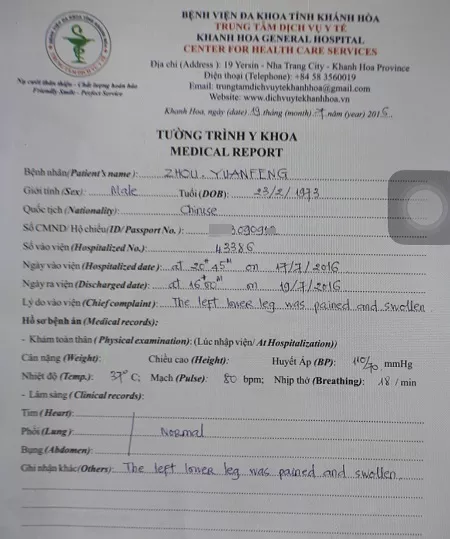 BỆNH VIỆN ĐA KHOA TỈNH KHÁNH HÒA
TRUNG TÂM DỊCH VỤ Y TẾ
KHANH HOA GENERAL HOSPITAL
CENTER FOR HEALTH CARE SERVICES
Địa chỉ (Address ): 19 Yersin - Nha Trang City - Khanh Hoa Province
Điện thoại (Telephone): +84 58 3560019
Email: trungtamdichvuytekhanhhoa@gmail.com
Website: www.dichvuytekhanhhoa.vn
Nụ cười thân thiện - Chất lượng hoàn hảo
Friendly Smile - Perfect Service
Khanh Hoa, ngày (date) 19 tháng (month) 7 năm (year) 2016
TƯỜNG TRÌNH Y KHOA
MEDICAL REPORT
Bệnh nhân(Patient's name ): ZHOU. YUANFENG
Giới tính (Sex): Male Tuổi (DOB): 23/2/1973
Quốc tịch (Nationality): Chinese
Số CMND/ Hộ chiếu(ID/ Passport No. ):
Số vào viện (Hospitalized No.): 43386
Ngày vào viện (Hospitalized date): at 20h 45m on 17/7/2016
Ngày ra viện (Discharged date): at 16h00m on 19/7/2016
Lý do vào viện (Chief complaint): The left lower leg was pained and swollen
Hồ sơ bệnh án (Medical records):
- Khám toàn thân ( Physical examination): (Lúc nhập viện/ At Hospitalization))
Cân nặng (Weight): Chiều cao (Height): Huyết Áp (BP): 110/70 mmHg
Nhiệt độ (Temp.): 37° C; Mạch (Pulse): 80 bpm; Nhịp thở (Breathing): 18 / min
- Lâm sàng ( Clinical records):
Tim ( Heart):
Phổi (Lung) Normal
Bụng (Abdomen):
Ghi nhận khác(Others): The left lower leg was pained and swollen.